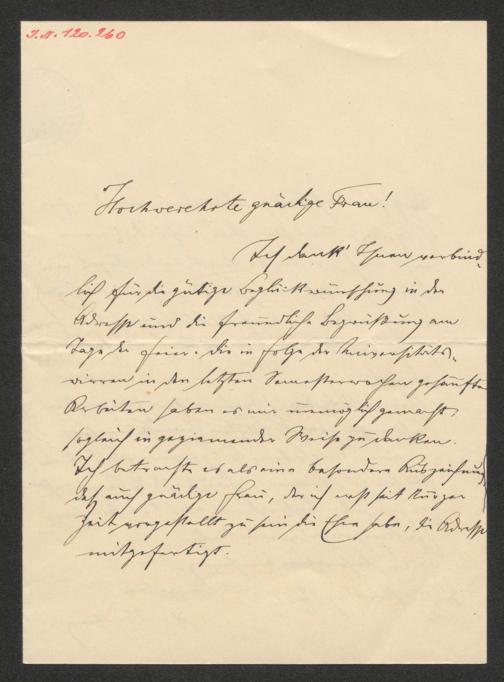 J.N. 120.260
Hochverehrte gnädige Frau!
Ich dank' Ihnen verbind-
lich für die gütige Beglückwünschung in der
Adresse und die freundliche Begrüßung am
Tage der Feier. Die in Folge der Universitäts-
wirren in den letzten Semesterwochen gehäuften
Arbeiten haben es mir unmöglich gemacht,
sogleich in geziemender Weise zu danken.
Ich betrachte es als eine besondere Auszeichnung,
daß auch gnädige Frau, der ich erst seit kurzer
Zeit vorgestellt zu sein die Ehre habe, die Adresse
mitgefertigt.